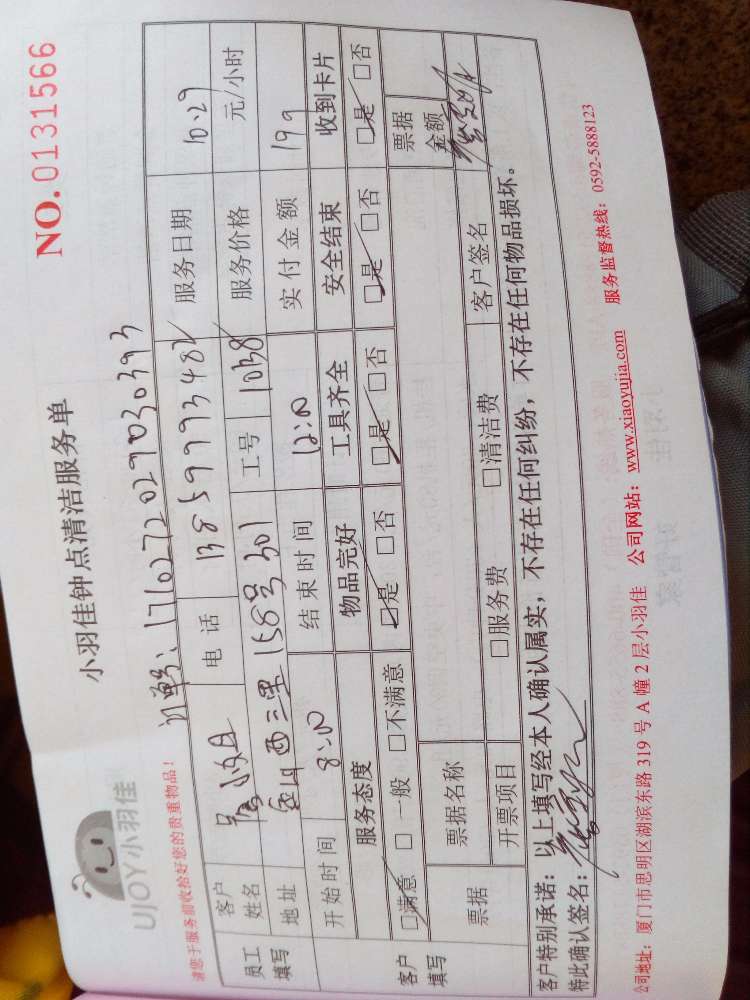 UJOY小羽佳
小羽佳钟点清洁服务单
NO.0131566
请您于服务前收拾好您的贵重物品!
订单号:1761027202702030393
员工填写
客户姓名 小姐 电话 13859773482 服务日期 10.29
地址 西三里158号301 工号 1038 服务价格 元/小时
开始时间 8:00 结束时间 12:00 实付金额 199
客户填写
服务态度 物品完好 工具齐全 安全结束 收到卡片
☑满意 □一般 □不满意 ☑是 □否 ☑是 □否 ☑是 □否 ☑是 □否
票据 票据名称 票据金额
开票项目 □服务费 □清洁费 客户签名
客户特别承诺:以上填写经本人确认属实,不存在任何纠纷,不存在任何物品损坏。
特此确认签名:
公司地址:厦门市思明区湖滨东路 319 号 A 幢 2 层小羽佳 公司网站:www.xiaoyujia.com 服务监督热线:0592-5888123